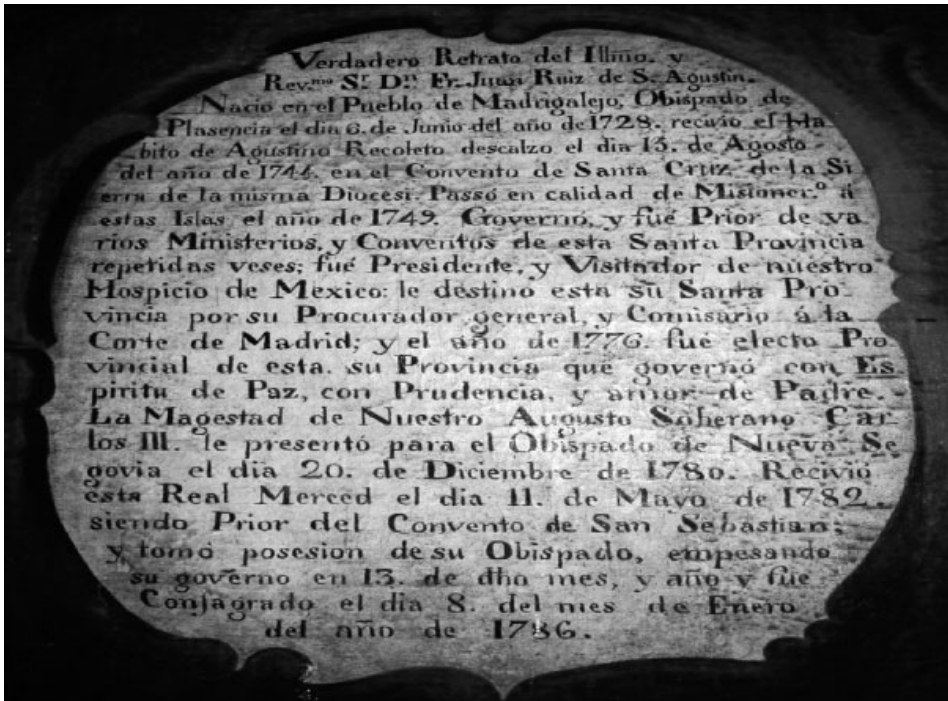 Verdadero Retrato del Illmo. y
Rev.mo Sr. Dn. Fr. Juan Ruiz de S. Agustin.
Nacio en el Pueblo de Madrigalejo, Obispado de
Plasencia el dia 6. de Junio del año de 1728. recivio el Ha
bito de Agustino Recoleto descalzo el dia 13. de Agosto
del año de 1744. en el Convento de Santa Cruz de la Si
erra de la misma Diocesi. Passó en calidad de Misioner.o á
estas Islas el año de 1749. Governó, y fué Prior de va
rios Ministerios, y Conventos de esta Santa Provincia
repetidas veses; fué Presidente, y Visitador de nuestro
Hospicio de Mexico: le destinó esta su Santa Pro
vincia por su Procurador general, y Comisario á la
Corte de Madrid; y el año de 1776. fué electo Pro
vincial de esta. su Provincia que governó con Es
piritu de Paz, con Prudencia, y amor de Padre.
La Magestad de Nuestro Augusto Soberano Car
los III. le presentó para el Obispado de Nueva Se
govia el dia 20. de Diciembre de 1780. Recivió
esta Real Merced el dia 11. de Mayo de 1782.
siendo Prior del Convento de San Sebastian;
y tomó posesion de su Obispado, empesando
su governo en 13. de dho mes, y año y fue
Consagrado el dia 8. del mes de Enero
del año de 1786.